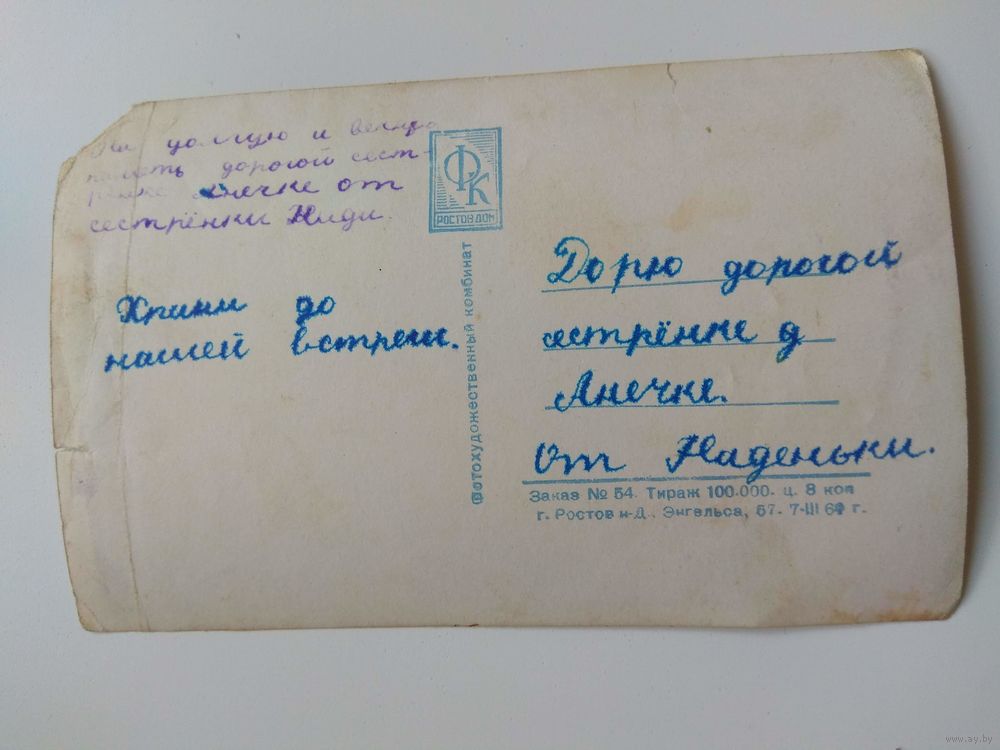 На долгую и вечную
память дорогой сест-
рёнке Анечке от
сестрёнки Нади.
Храни до
нашей встречи.
ФК
РОСТОВ ДОН
Фотохудожественный комбинат
Дорю дорогой
сестрёнке д
Анечке.
От Наденьки.
Заказ № 54. Тираж 100.000. ц. 8 коп
г. Ростов н-Д., Энгельса, 57. 7-III г.
www.ay.by